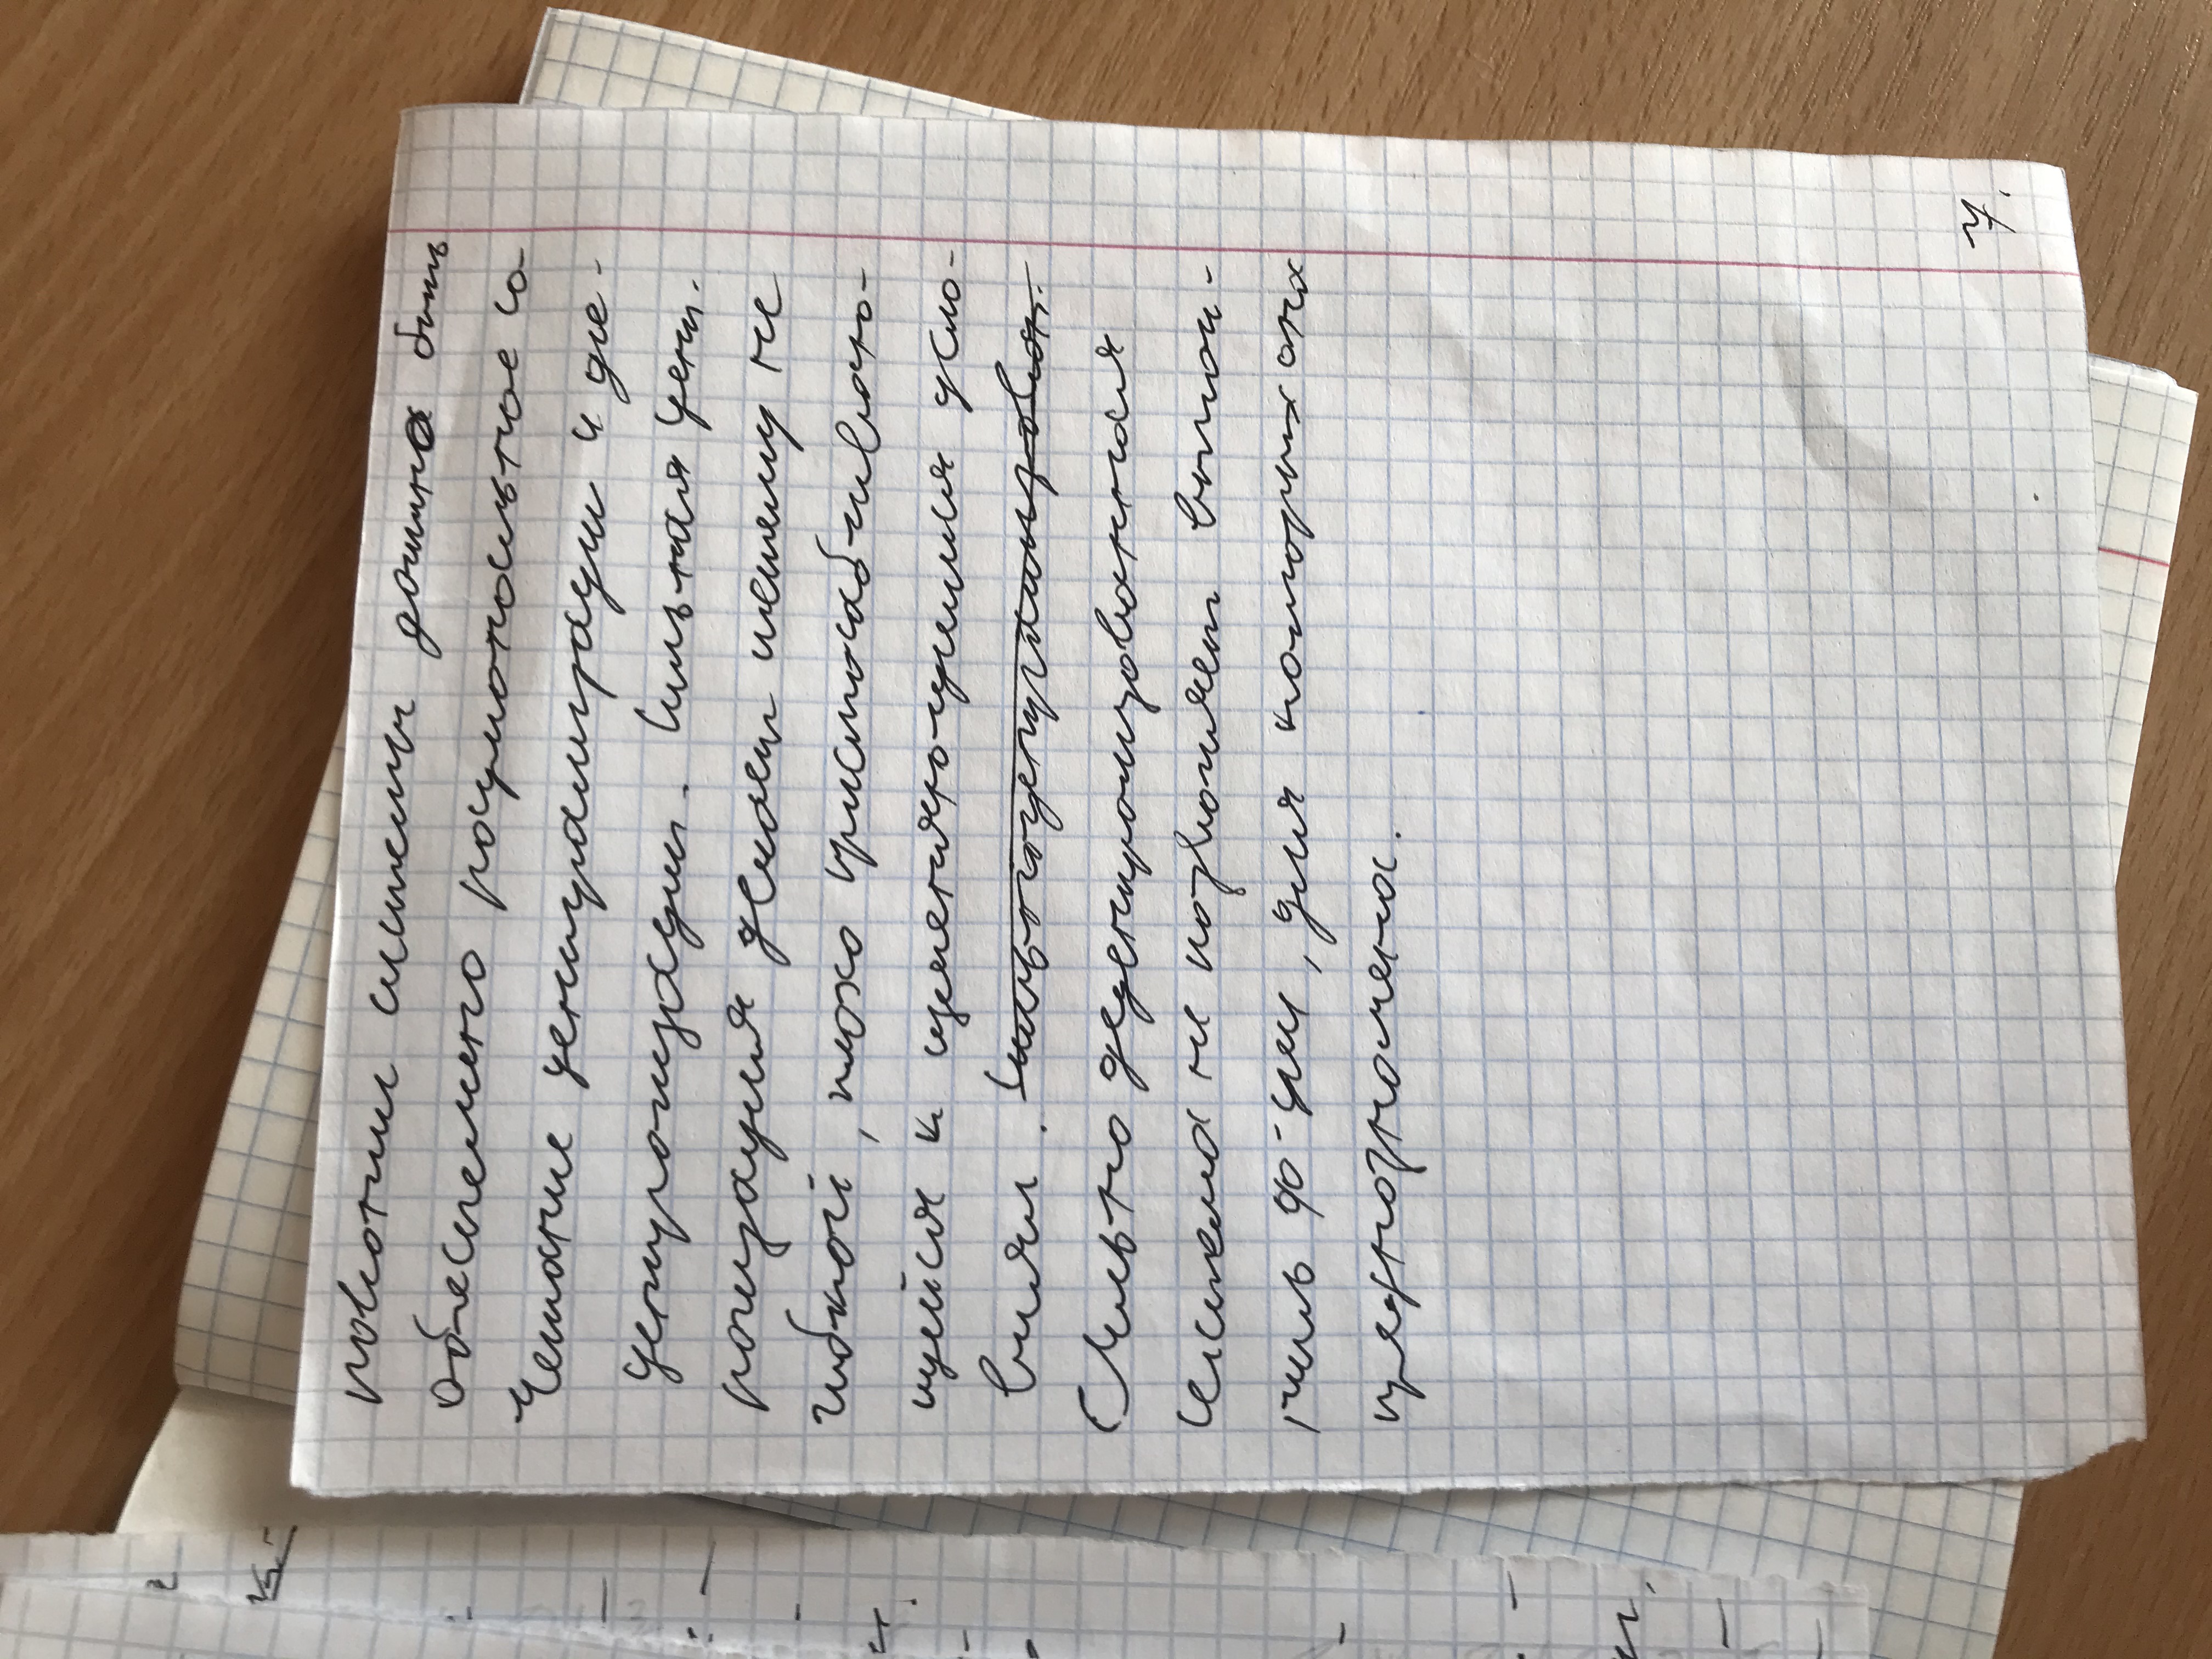 ровании системы должно быть
обеспечено рациональное со-
четание централизации и де-
централизации. Сильная цент-
рализация делает систему не
гибкой, плохо приспосабливаю-
щейся к изменяющимся усло-
виям. Сильноцентрализирован.
Сильно децентрализованная
система не позволяет выпол-
нить ф-ции, для которых она
предназначена.
7.